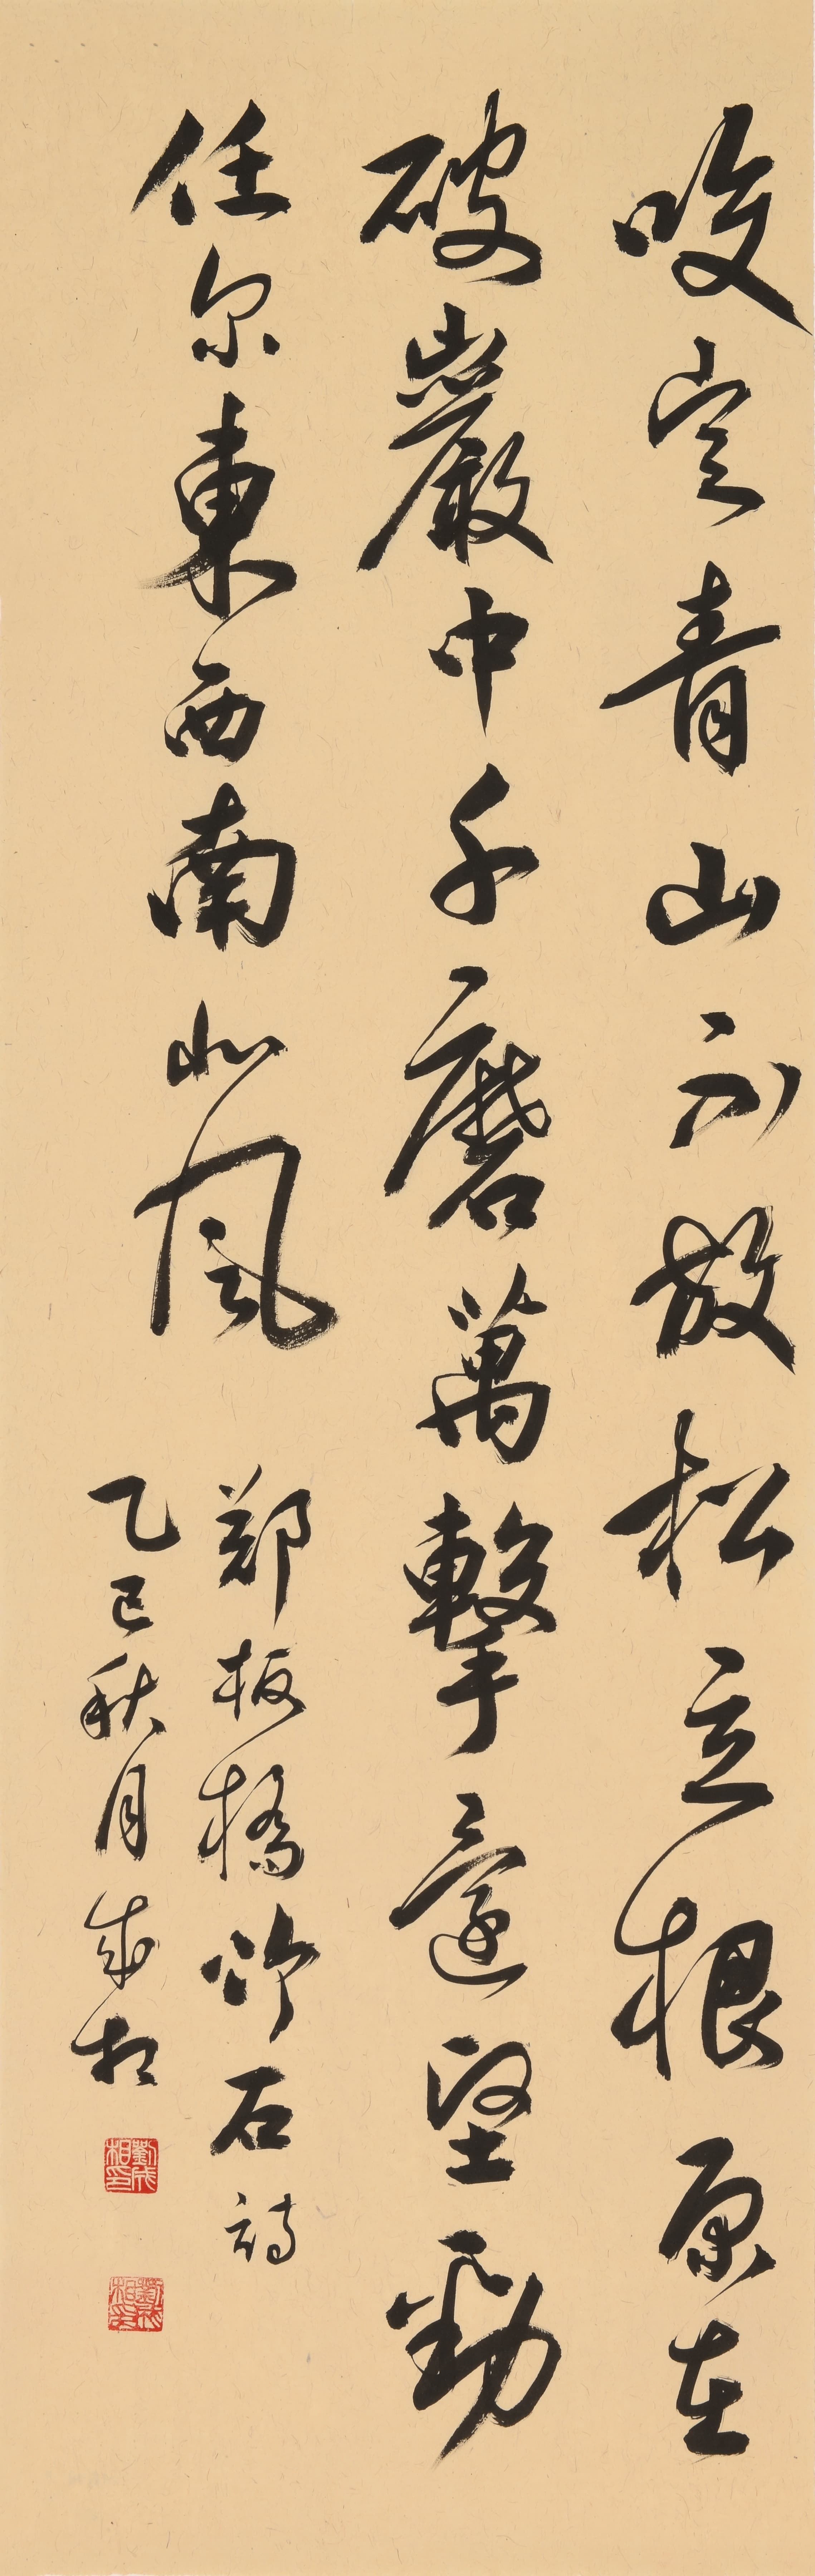 咬定青山不放松立根原在
破巖中千磨萬擊還堅勁
任尔東西南北風
郑板橋竹石詩
乙巳秋月成相
劉成相印